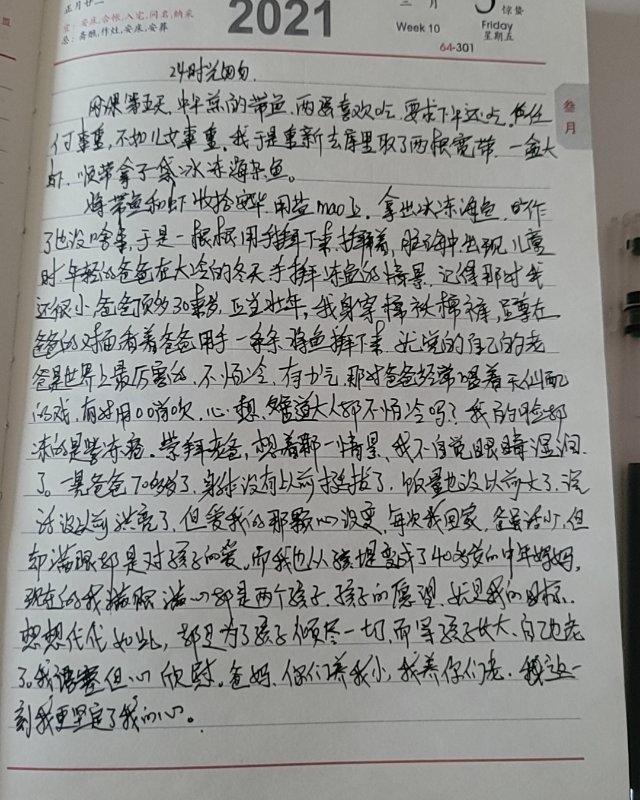 正月廿二
宜：安床,合帐,入宅,问名,纳采
忌：斋醮,作灶,安床,安葬
2021
三 月
Week 10
5 惊蛰
Friday
星期五
64-301
叁月
24时光匆匆.
网课第五天,中午煎的带鱼,两孩喜欢吃,要求下午还吃,任
何事重,不如儿女事重,我于是重新去库里取了两根宽带,一盒大
虾,顺带拿了袋冰冻海杂鱼。
将带鱼和虾收拾完毕,用盐mao上,拿出冰冻海鱼,
了也没啥事,于是一根根用手掰下来,掰着,脑海中出现儿童
时年轻的爸爸在大冷的冬天手掰冻鱼的情景,记得那时我
还很小,爸爸顶多30来岁,正当壮年,我身穿棉袄棉裤,蹲在
爸爸的对面看着爸爸用手一条条将鱼掰下来,尤觉的自己的老
爸是世界上最厉害的,不怕冷,有力气,那时爸爸经常唱着天仙配
的戏,有时用口哨吹,心想,难道大人都不怕冷吗?我的脸都
冻的是紫冻疮。崇拜老爸,想着那一情景,我不自觉眼睛湿润
了。爸爸70多岁了,身体没有以前挺拔了,饭量也没以前大了,说
话没以前洪亮了,但爱我的那颗心没变,每次我回家,爸虽话少,但
却满眼都是对孩子的爱。而我也从孩提变成了40多岁的中年妈妈,
现在的我满眼满心都是两个孩子,孩子的愿望,就是我的目标.
想想代代如此,都是为了孩子倾尽一切,而等孩子长大,自己也老
了。我 但心欣慰。爸妈,你们养我小,我养你们老,我这一
刻我更坚定了我的心。